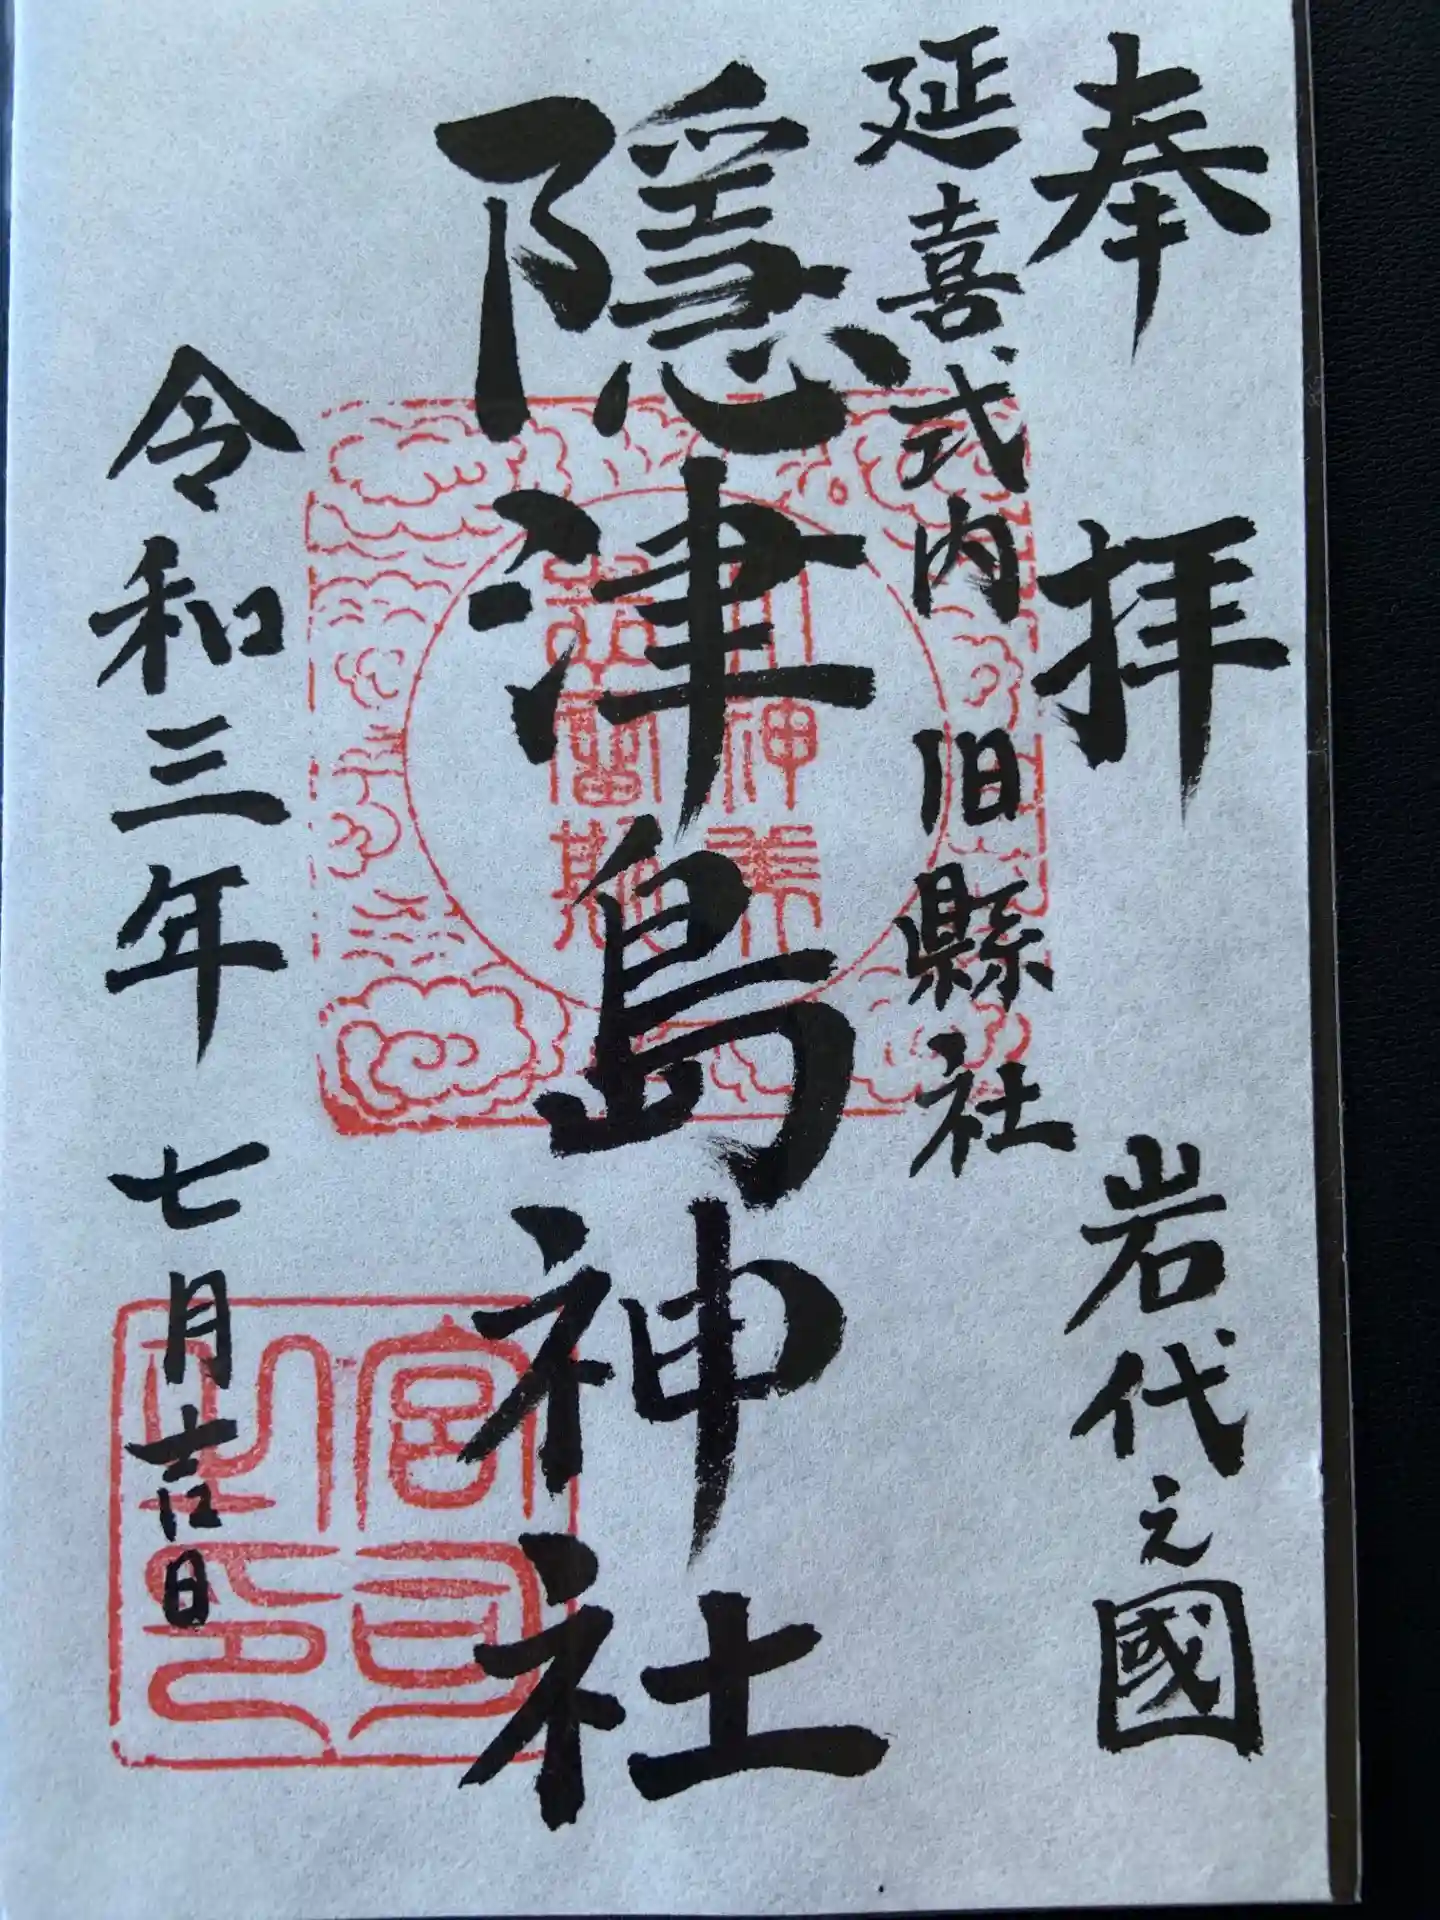 奉拝 岩代之國
延喜式内 旧縣社
隱津島神社
令和三年 七月吉日
宮司之印